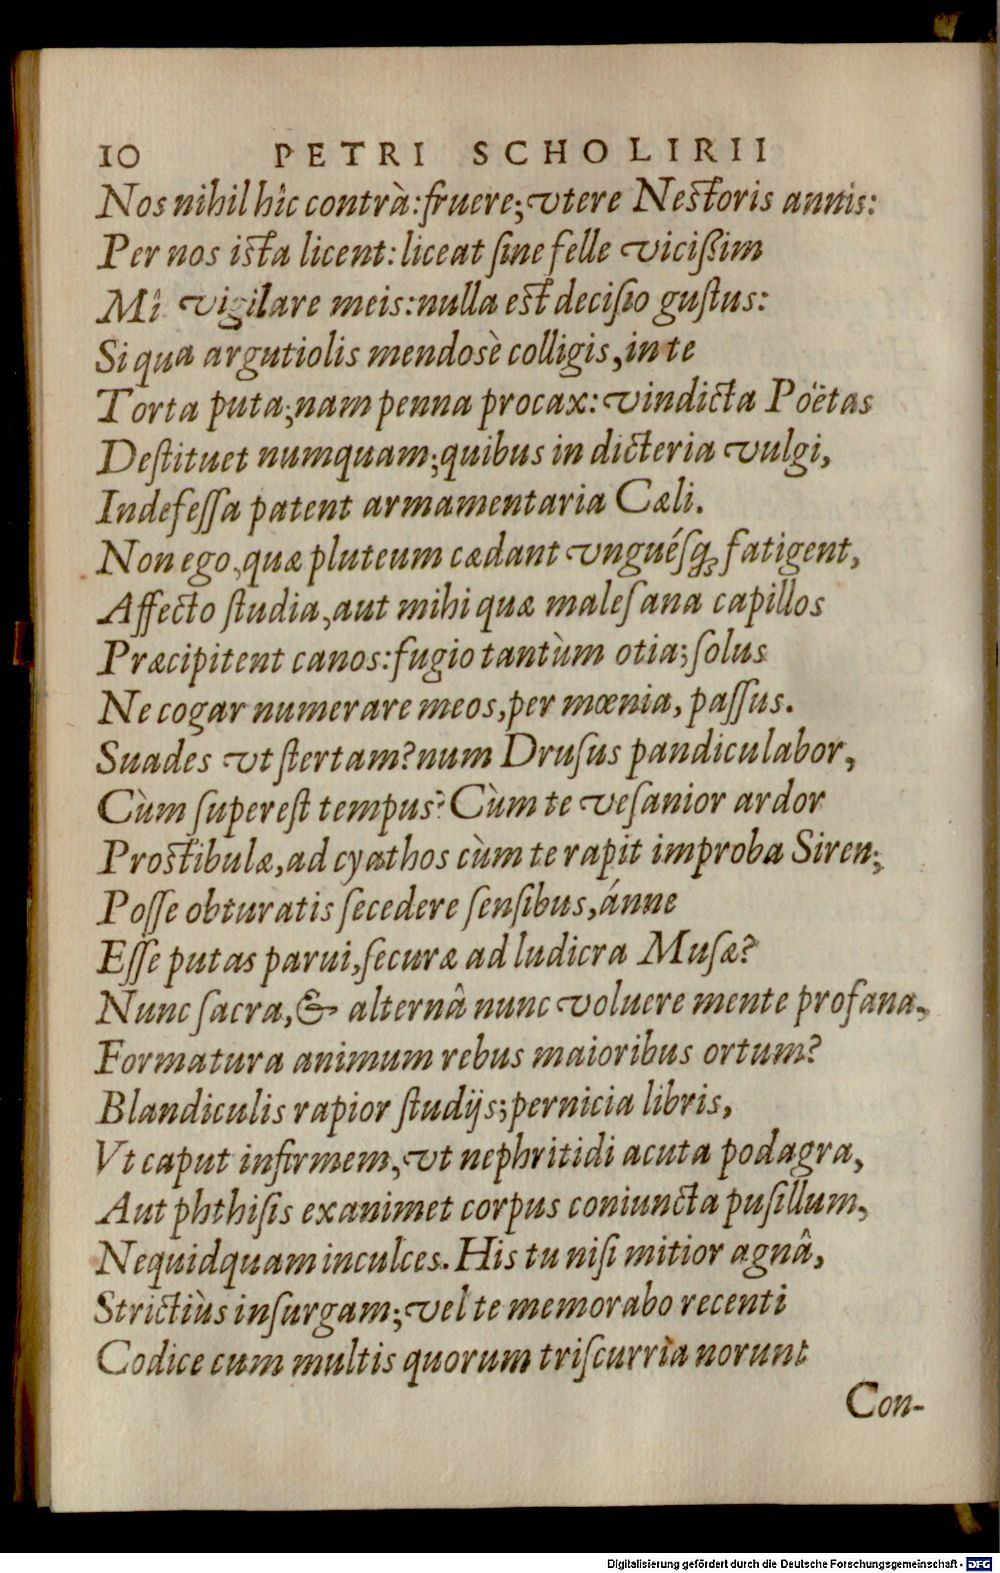 10 PETRI SCHOLIRII
Nos nihil hîc contrà: fruere; vtere Nestoris annis:
Per nos ista licent: liceat ſine felle vicißim
Mî vigilare meis: nulla est deciſio guſtus:
Si qua argutiolis mendosè colligis, in te
Torta puta; nam penna procax: vindicta Poëtas
Deſtituet numquam; quibus in dicteria vulgi,
Indefeſſa patent armamentaria Cæli.
Non ego, quæ pluteum cædant vnguésq; fatigent,
Affecto ſtudia, aut mihi quæ maleſana capillos
Præcipitent canos: fugio tantùm otia; ſolus
Ne cogar numerare meos, per mœnia, paſſus.
Suades vt ſtertam? num Druſus pandiculabor,
Cùm ſupereſt tempus? Cùm te veſanior ardor
Prostibulæ, ad cyathos cùm te rapit improba Siren;
Poſſe obturatis ſecedere ſenſibus, ánne
Eſſe putas parui, ſecuræ ad ludicra Muſæ?
Nunc ſacra, & alternâ nunc voluere mente profana,
Formatura animum rebus maioribus ortum?
Blandiculis rapior ſtudijs; pernicia libris,
Vt caput infirmem, vt nephritidi acuta podagra,
Aut phthiſis exanimet corpus coniuncta puſillum,
Nequidquam inculces. His tu niſi mitior agnâ,
Strictiùs inſurgam; vel te memorabo recenti
Codice cum multis quorum triſcurria norunt
Con-
Digitalisierung gefördert durch die Deutsche Forschungsgemeinschaft - DFG